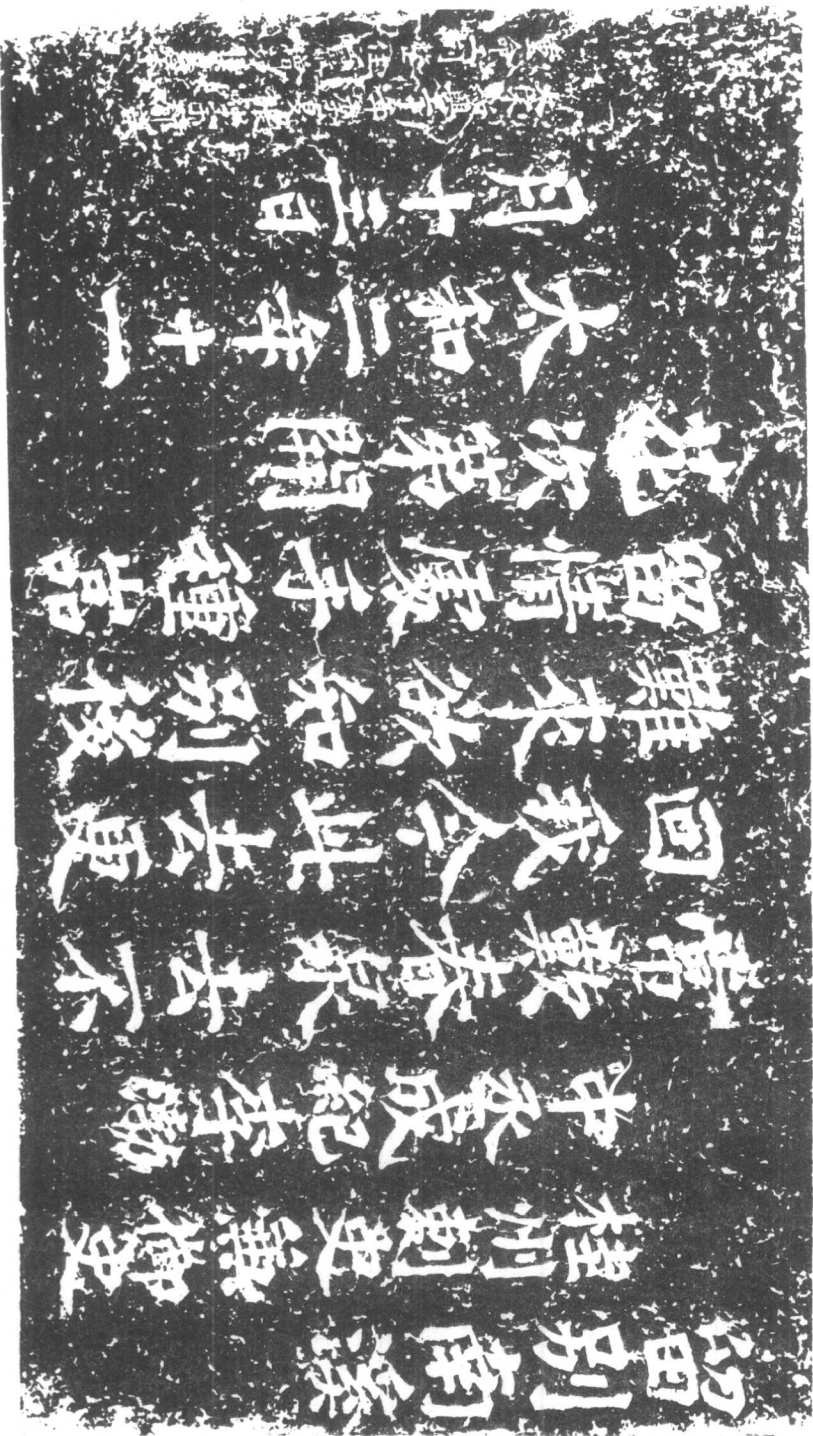 留別南溪
桂州刺史兼御史
中丞成紀李渤
常歎春泉去不
回我今此去更
難來欲知別後
留情處手種嵒
花次第開
太和二年十一
月十三日